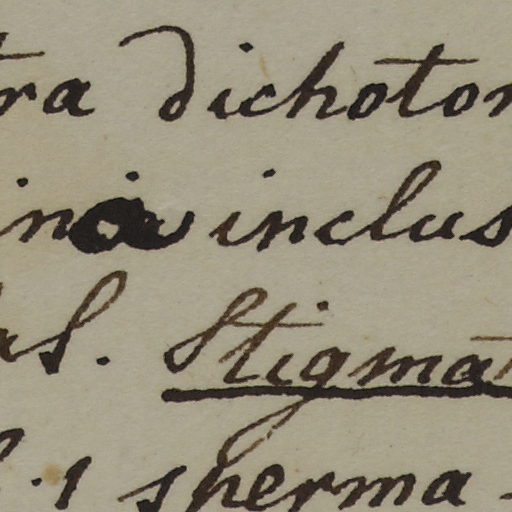 tra dichoto
ina inclus
als. Stigma
l. 1 sperma